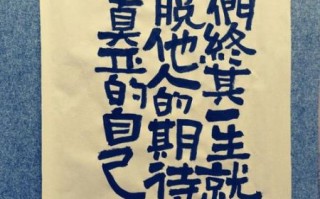 們終其一生就
脫他人的期待
真正的自己